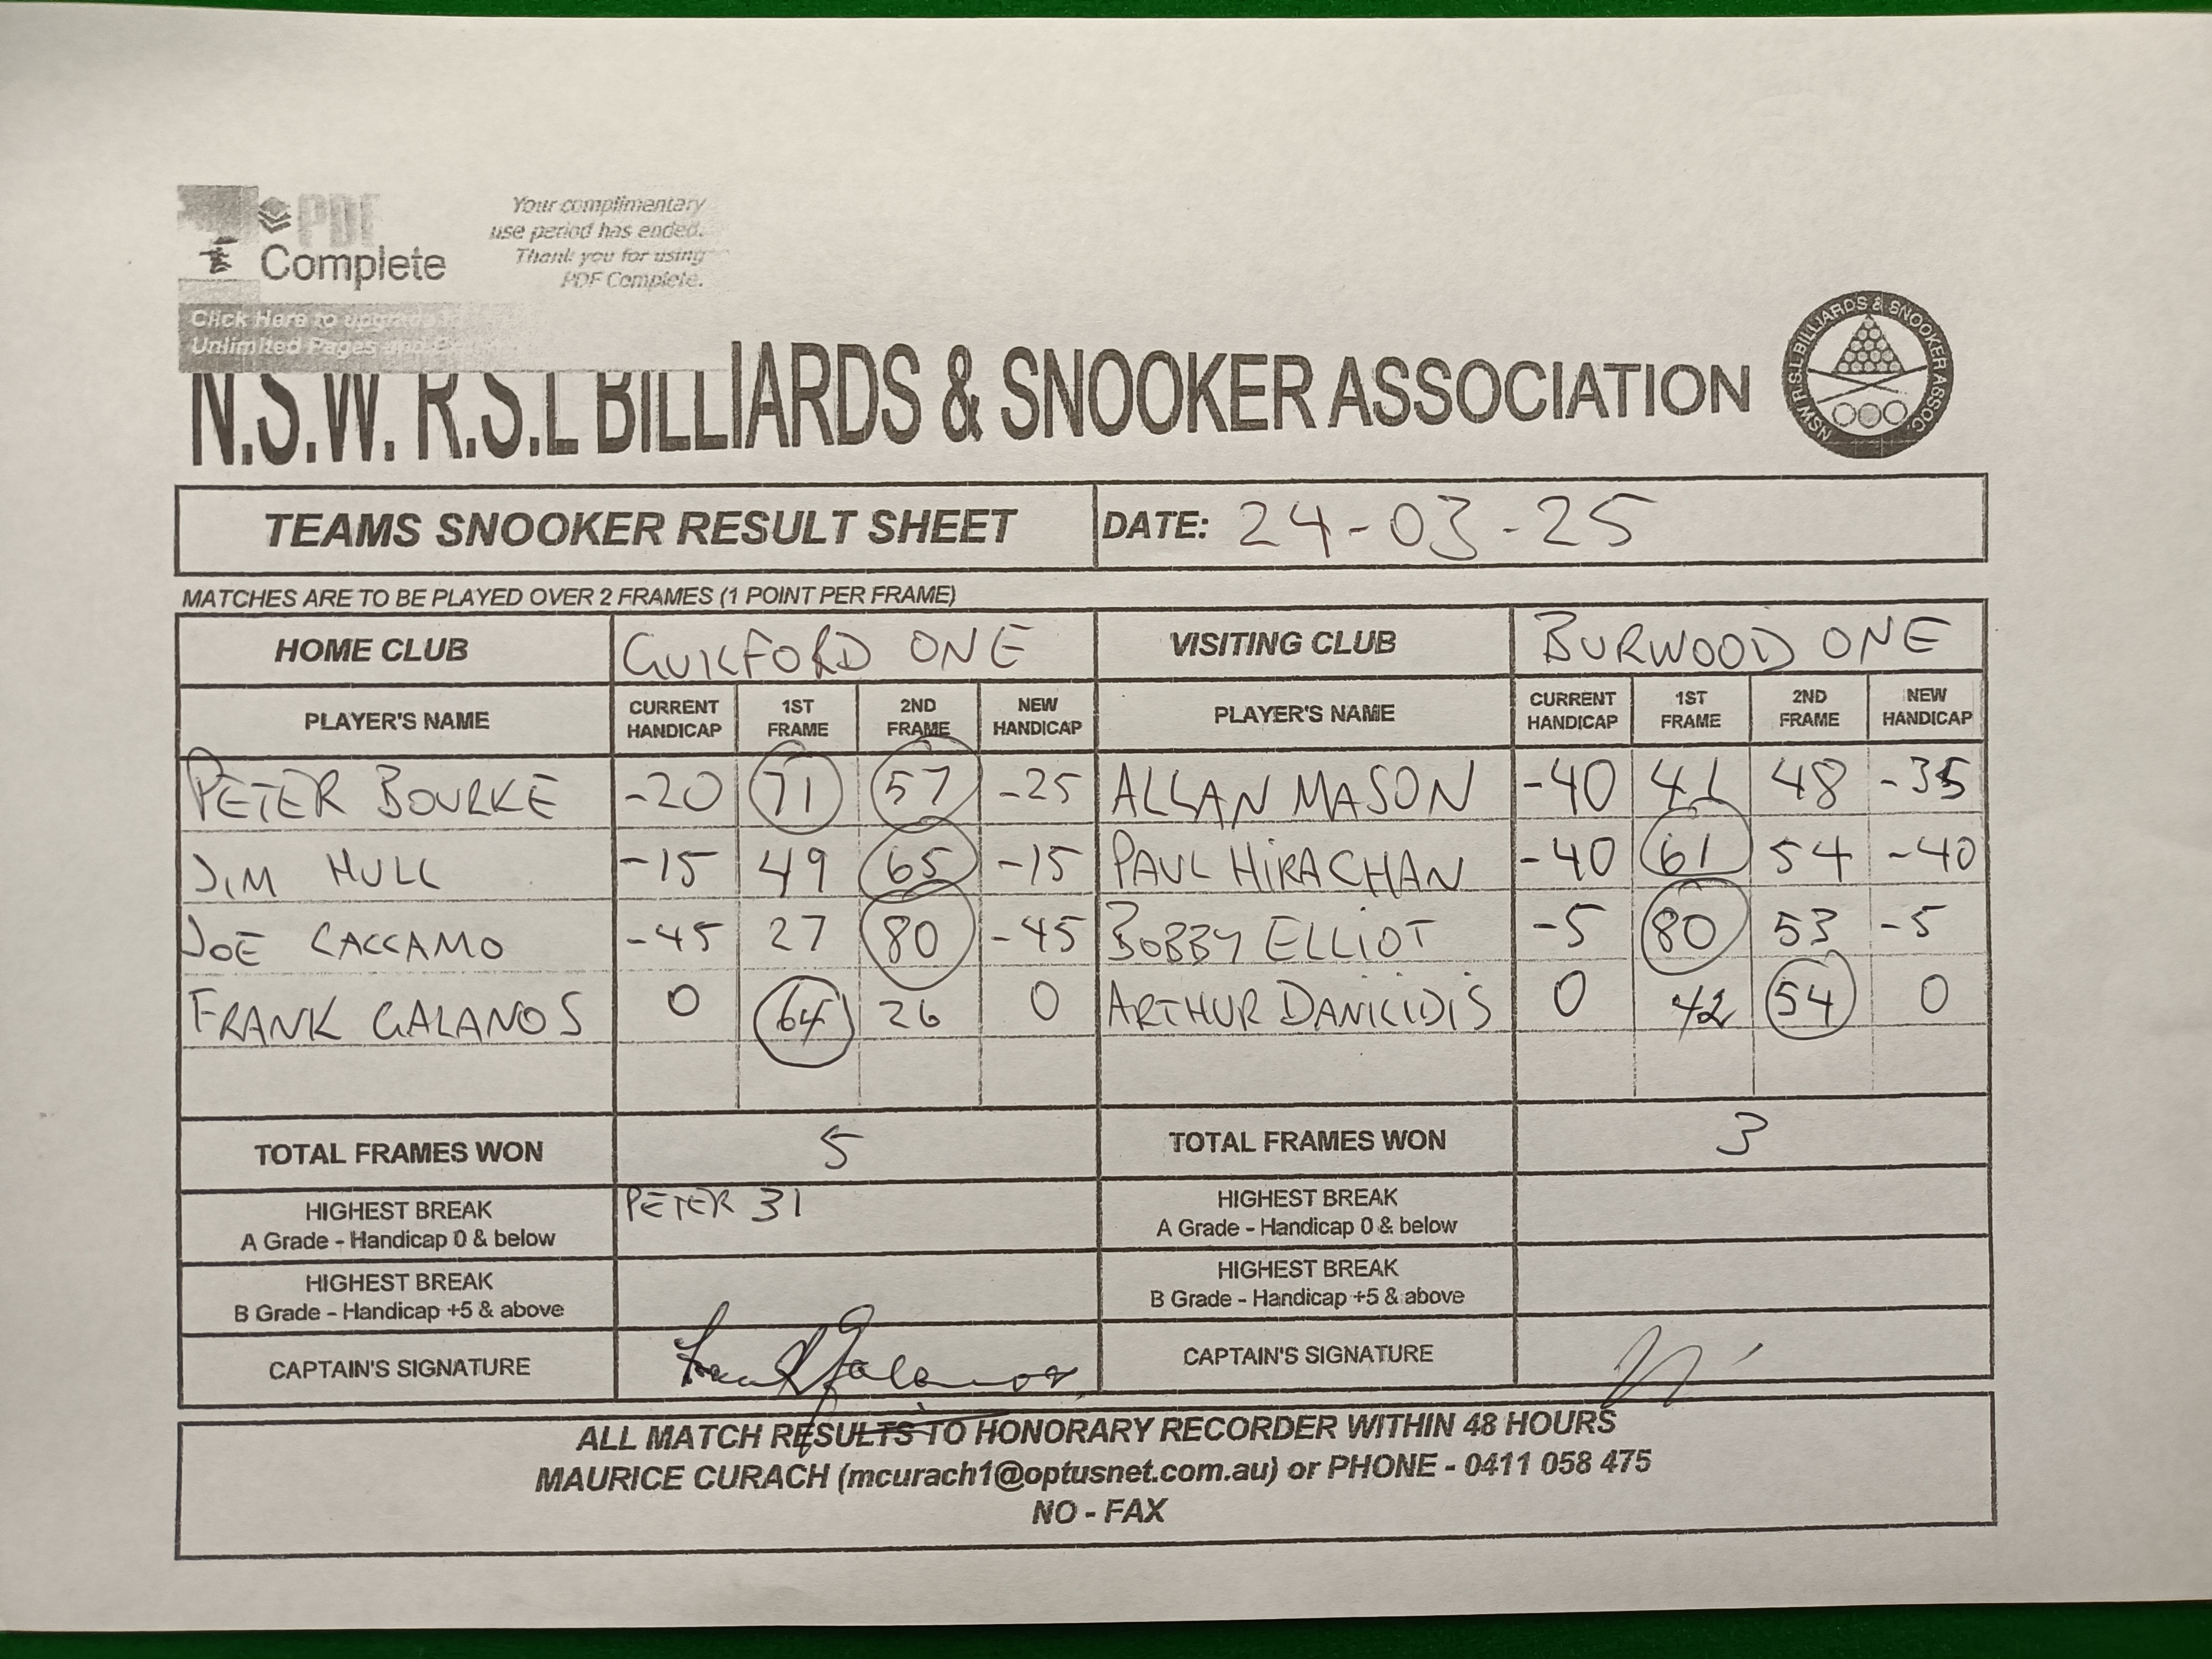 PDF
Complete
Your complimentary
use period has ended.
Thank you for using
PDF Complete.
Click Here to upgrade to
Unlimited Pages and
N.S.W. R.S.L BILLIARDS & SNOOKER ASSOCIATION
NSW R.S.L BILLIARDS & SNOOKER ASSOC.
TEAMS SNOOKER RESULT SHEET DATE: 24-03-25
MATCHES ARE TO BE PLAYED OVER 2 FRAMES (1 POINT PER FRAME)
HOME CLUB GUILFORD ONE VISITING CLUB BURWOOD ONE
PLAYER'S NAME CURRENT HANDICAP 1ST FRAME 2ND FRAME NEW HANDICAP PLAYER'S NAME CURRENT HANDICAP 1ST FRAME 2ND FRAME NEW HANDICAP
PETER BOURKE -20 71 57 -25 ALLAN MASON -40 41 48 -35
JIM HULL -15 49 65 -15 PAUL HIRACHAN -40 61 54 -40
JOE CACCAMO -45 27 80 -45 BOBBY ELLIOT -5 80 53 -5
FRANK GALANOS 0 64 26 0 ARTHUR DANILIDIS 0 42 54 0
TOTAL FRAMES WON 5 TOTAL FRAMES WON 3
HIGHEST BREAK PETER 31 HIGHEST BREAK
A Grade - Handicap 0 & below A Grade - Handicap 0 & below
HIGHEST BREAK HIGHEST BREAK
B Grade - Handicap +5 & above B Grade - Handicap +5 & above
CAPTAIN'S SIGNATURE Frank Galanos CAPTAIN'S SIGNATURE
ALL MATCH RESULTS TO HONORARY RECORDER WITHIN 48 HOURS
MAURICE CURACH (mcurach1@optusnet.com.au) or PHONE - 0411 058 475
NO - FAX